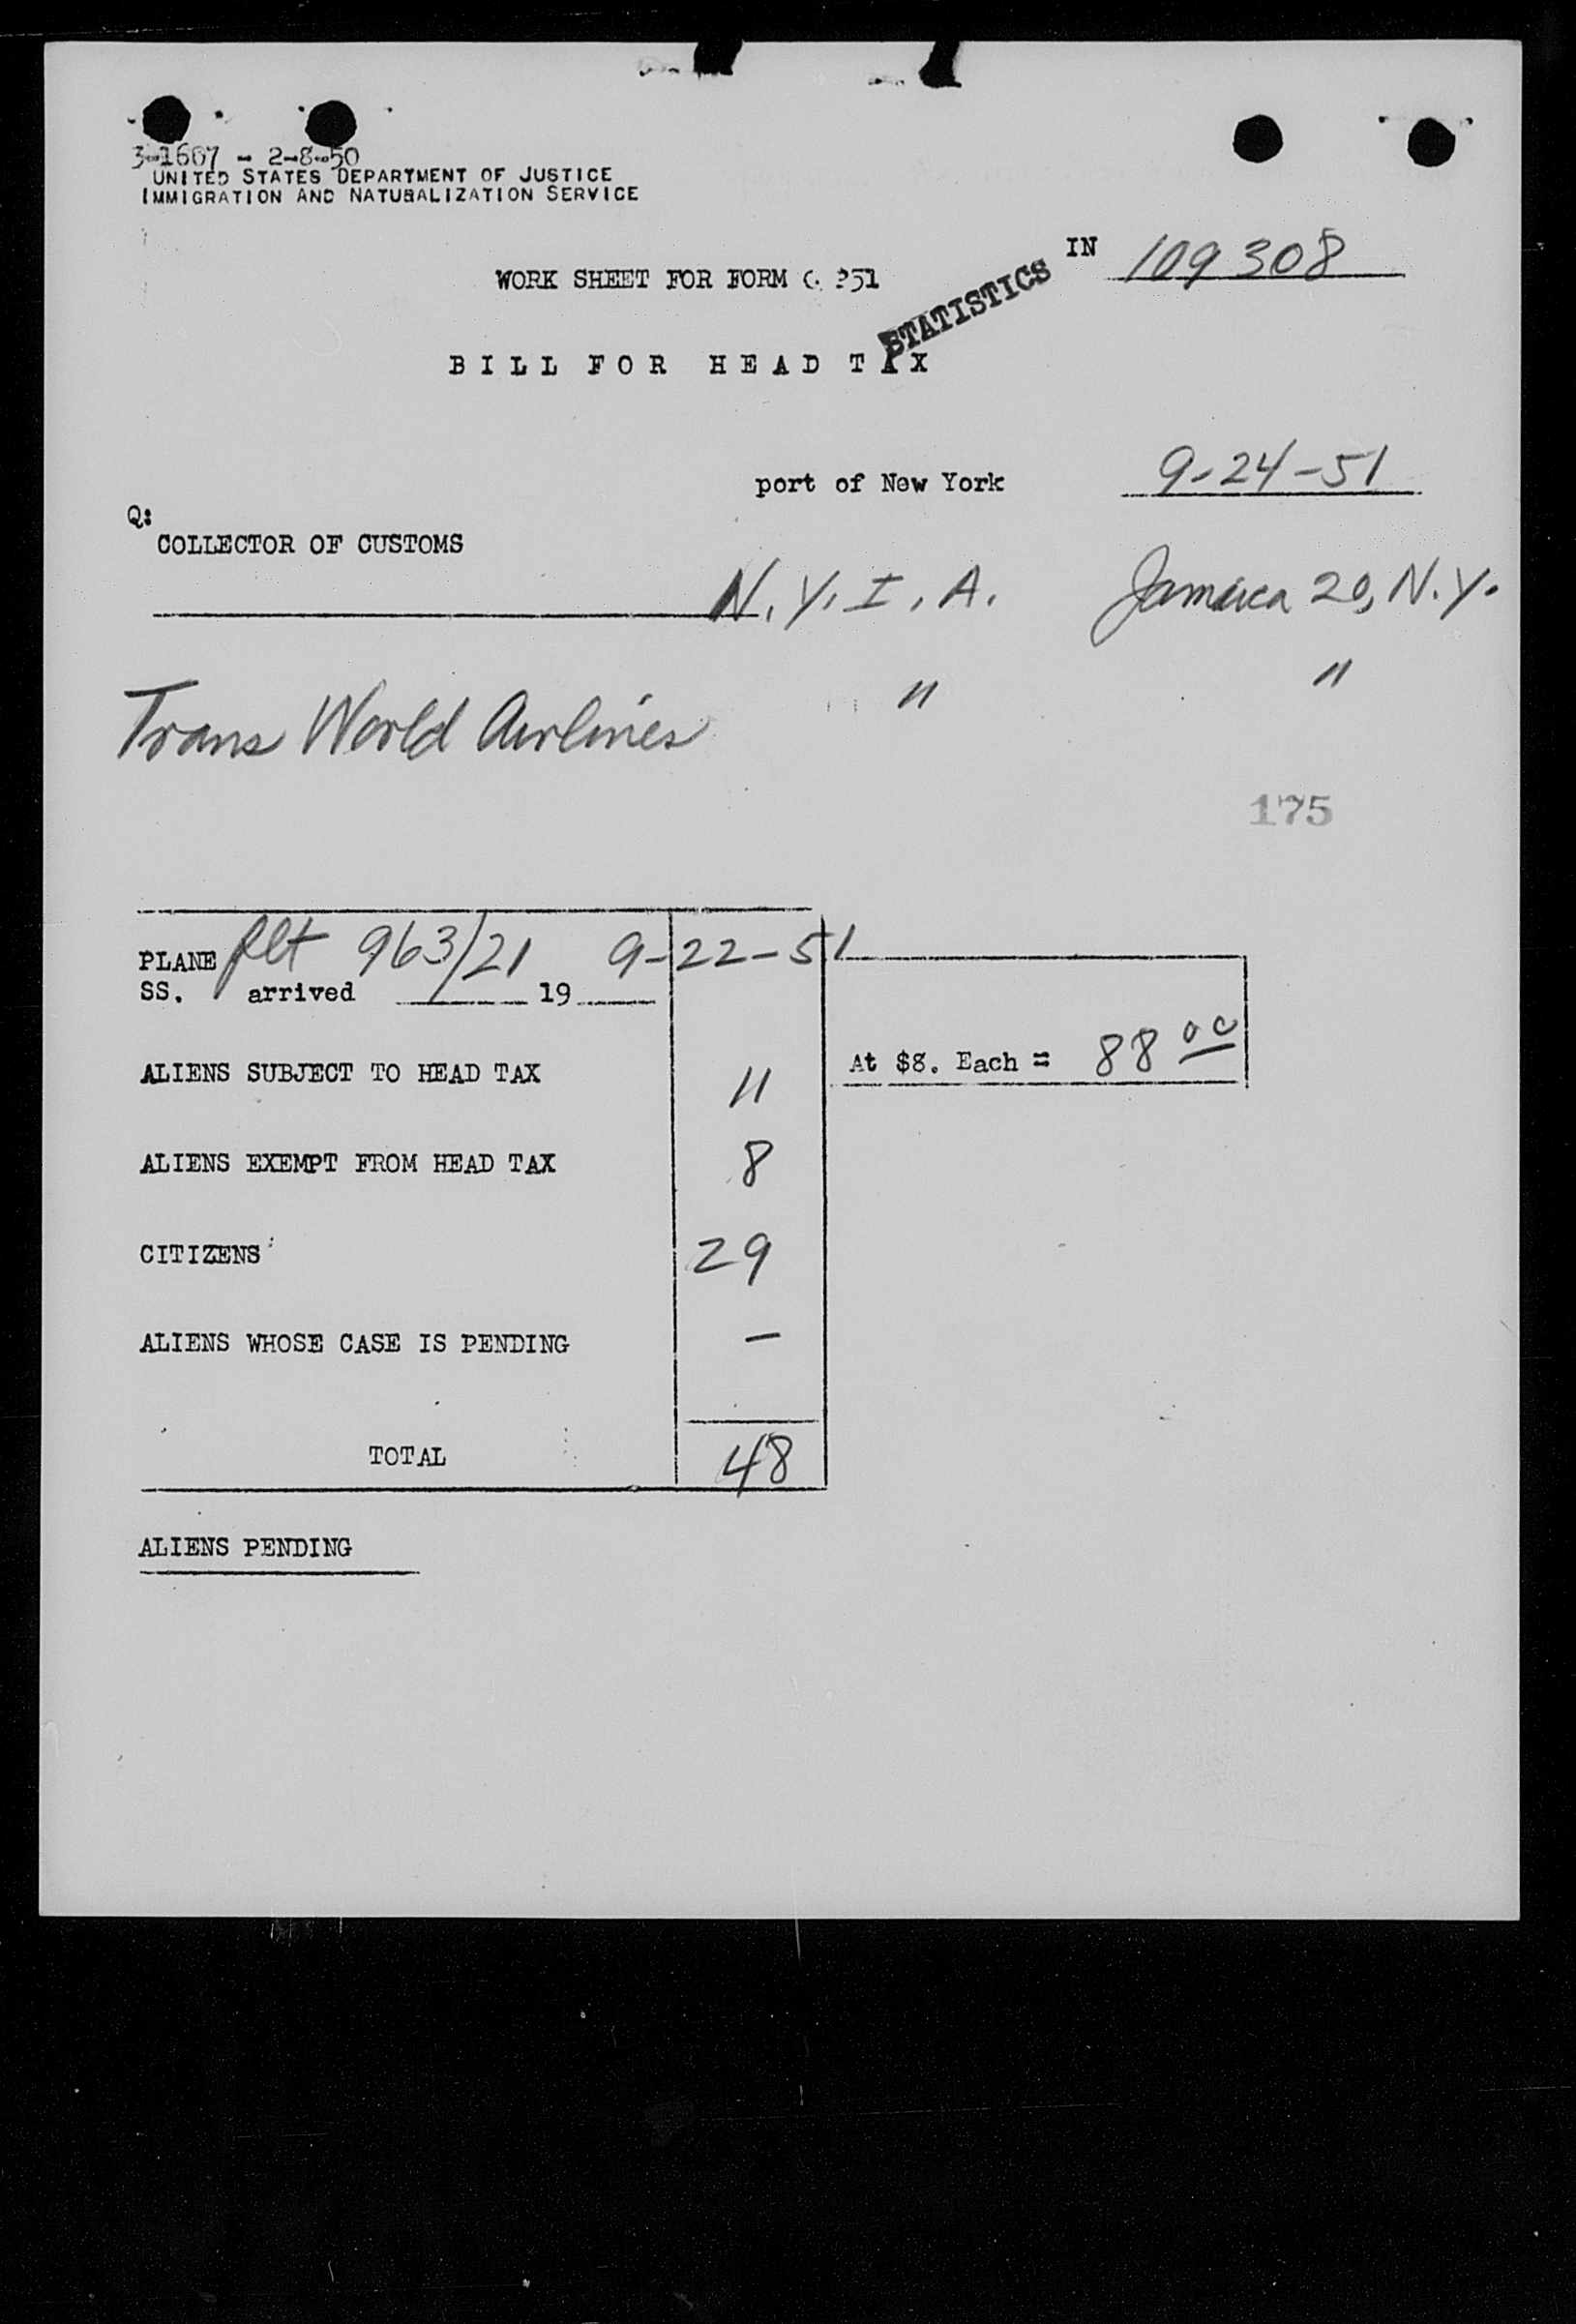 3-1667 - 2-8-50
UNITED STATES DEPARTMENT OF JUSTICE
IMMIGRATION AND NATURALIZATION SERVICE
IN 109308
WORK SHEET FOR FORM 351
STATISTICS
BILL FOR HEAD TAX
port of New York 9-24-51
Q:
COLLECTOR OF CUSTOMS
N.Y.I.A. Jamaica 20, N.Y.
Trans World Airlines " "
175
PLANE flt 963/21 9-22-51
SS. arrived 19
ALIENS SUBJECT TO HEAD TAX 11 At $8. Each = 88 00
ALIENS EXEMPT FROM HEAD TAX 8
CITIZENS 29
ALIENS WHOSE CASE IS PENDING -
TOTAL 48
ALIENS PENDING